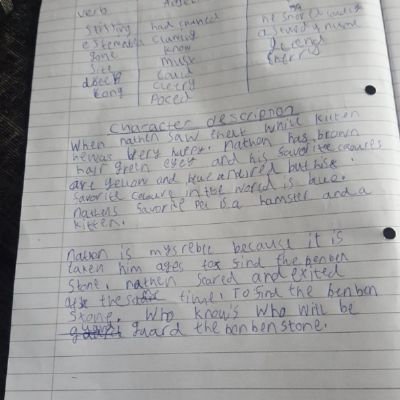 verb
had chance
esternable claming
gone know
Sree must
docey could
Long cleery
Paced
Character description
When nathen saw that white kitten
he was very happy. Nathon has brown
hair green eyes and his savorite colours
are yellow and blue and red but his
savorite colour in the world is blue.
nathens savorite pet is a hamster and a
kitten.
nathon is misreble because it is
taken him ages to find the benben
Stone. nathen scared and exited
at the same time. To find the benben
Stone. Who know's who will be
guard the bonbenstone.